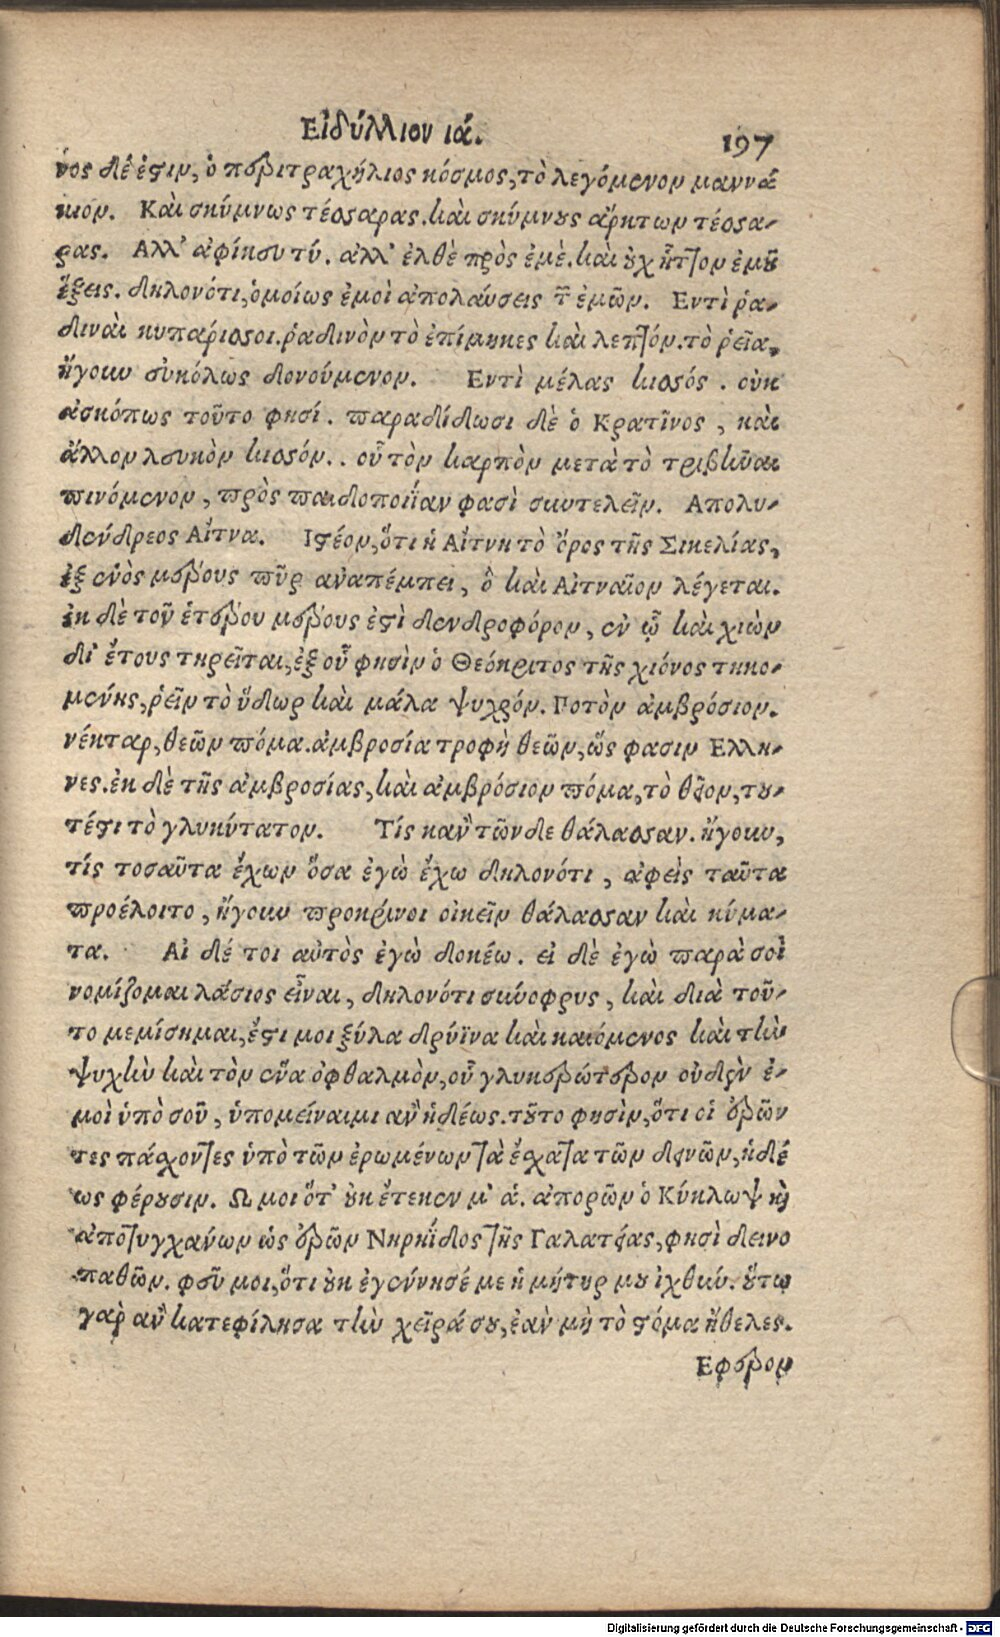 Εἰδύλλιον ιά.
197
νος δέ ἐστιν, ὁ περιτραχήλιος κόσμος, τὸ λεγόμενον μαννά
κιον. Καὶ σκύμνως τέσσαρας. καὶ σκύμνους ἄρκτων τέσσα-
ρας. Ἀλλ' ἀφίκευ τύ. ἀλλ' ἐλθὲ πρὸς ἐμὲ. καὶ οὐχ ἧττον ἐμοῦ
ἕξεις. δηλονότι, ὁμοίως ἐμοὶ ἀπολαύσεις τῶν ἐμῶν. Ἐντὶ ῥα-
διναὶ κυπάρισσοι. ῥαδινὸν τὸ ἐπίμηκες καὶ λεπτόν. τὸ ῥεῖα,
ἤγουν εὐκόλως δονούμενον. Ἐντὶ μέλας κισσός. οὐκ
ἀσκόπως τοῦτο φησί. παραδίδωσι δὲ ὁ Κρατῖνος, καὶ
ἄλλον λευκὸν κισσόν.. οὗ τὸν καρπὸν μετὰ τὸ τριβῆναι
πινόμενον, πρὸς παιδοποιΐαν φασὶ συντελεῖν. Ἀπολυ-
δένδρεος Αἴτνα. Ἰστέον, ὅτι ἡ Αἴτνη τὸ ὄρος τῆς Σικελίας,
ἐξ ἑνὸς μέρους πῦρ ἀναπέμπει, ὃ καὶ Αἰτναῖον λέγεται.
ἐκ δὲ τοῦ ἑτέρου μέρους ἐστὶ δενδροφόρον, ἐν ᾧ καὶ χιὼν
δι' ἔτους τηρεῖται, ἐξ οὗ φησὶν ὁ Θεόκριτος τῆς χιόνος τηκο-
μένης, ῥεῖν τὸ ὕδωρ καὶ μάλα ψυχρόν. Ποτὸν ἀμβρόσιον.
νέκταρ, θεῶν πόμα. ἀμβροσία τροφὴ θεῶν, ὥς φασιν Ἕλλη-
νες. ἐκ δὲ τῆς ἀμβροσίας, καὶ ἀμβρόσιον πόμα, τὸ θεῖον, του-
τέστι τὸ γλυκύτατον. Τίς καν τῶνδε θάλασσαν. ἤγουν,
τίς τοσαῦτα ἔχων ὅσα ἐγὼ ἔχω δηλονότι, ἀφεὶς ταῦτα
προέλοιτο, ἤγουν προκρίνοι οἰκεῖν θάλασσαν καὶ κύμα-
τα. Αἰ δέ τοι αὐτὸς ἐγὼ δοκέω. εἰ δὲ ἐγὼ παρὰ σοὶ
νομίζομαι λάσιος εἶναι, δηλονότι σκύοφρυς, καὶ διὰ τοῦ-
το μεμίσημαι, ἔστι μοι ξύλα δρύϊνα καὶ καιόμενος καὶ τὴν
ψυχὴν καὶ τὸν ἕνα ὀφθαλμὸν, οὗ γλυκερώτερον οὐδὲν ἐ-
μοὶ ὑπὸ σοῦ, ὑπομείναιμι ἂν ἡδέως. τοῦτο φησὶν, ὅτι οἱ ἐρῶν
τες πάσχοντες ὑπὸ τῶν ἐρωμένων τὰ ἔσχατα τῶν δεινῶν, ἡδέ
ως φέρουσιν. Ὤ μοι ὅτ' οὐκ ἔτεκεν μ' ἁ. ἀπορῶν ὁ Κύκλωψ καὶ
ἀποτυγχάνων ὡς ἐρῶν Νηρηΐδος τῆς Γαλατείας, φησὶ δεινο
παθῶν. φεῦ μοι, ὅτι οὐκ ἐγέννησέ με ἡ μήτηρ μου ἰχθύν. οὕτω
γὰρ ἂν κατεφίλησα τὴν χεῖρά σου, ἐὰν μὴ τὸ στόμα ἤθελες.
Ἔφερον
Digitalisierung gefördert durch die Deutsche Forschungsgemeinschaft - DFG